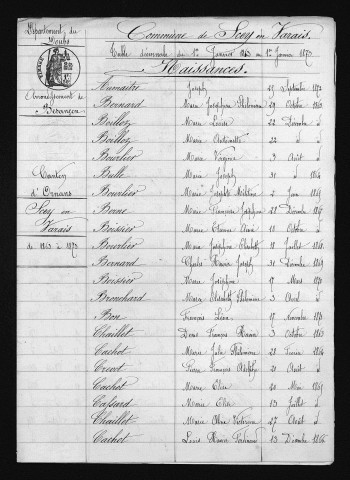 Département du
Doubs
Arrondissement de
Besançon
Canton
d'Ornans
Scey en
Varais
de 1863 à 1873
Commune de Scey en Varais.
Table décennale du 1er Janvier 1863 au 1er Janvier 1873
Naissances.
Joseph 15 Septembre 1872
Bernard Marie Joséphine Philomène 29 Octobre 1863
Boilloz Marie Louise 22 Décembre d
Boilloz Marie Antoinette 22 d d
Bourlier Marie Virginie 3 Août d
Belle Marie Joseph 31 d 1864
Bourlier Marie Joseph 2 Juin 1865
Bonne Marie Françoise Joséphine 28 Décembre 1867
Boissier Marie Etienne 15 Octobre d
Bourlier Marie Joséphine 18 Juillet 1868
Bernard Charles Marie Joseph 31 Décembre 1869
Boissier Marie Joséphine 17 Mars d
Bronchard Marie Philomène 3 Avril d
Bon François Léon 17 Novembre d
Chaillet Denis François Xavier 3 Octobre 1863
Cachot Marie Julie Philomène 28 Février 1864
Crevot Pierre François Adolphe 21 d d
Cachot Marie Elise 20 Mai 1865
Cassard Marie Elise 13 Juillet d
Chaillet Marie Victorine 27 Août d
Cachot Louis Xavier Ferdinand 13 Décembre 1866